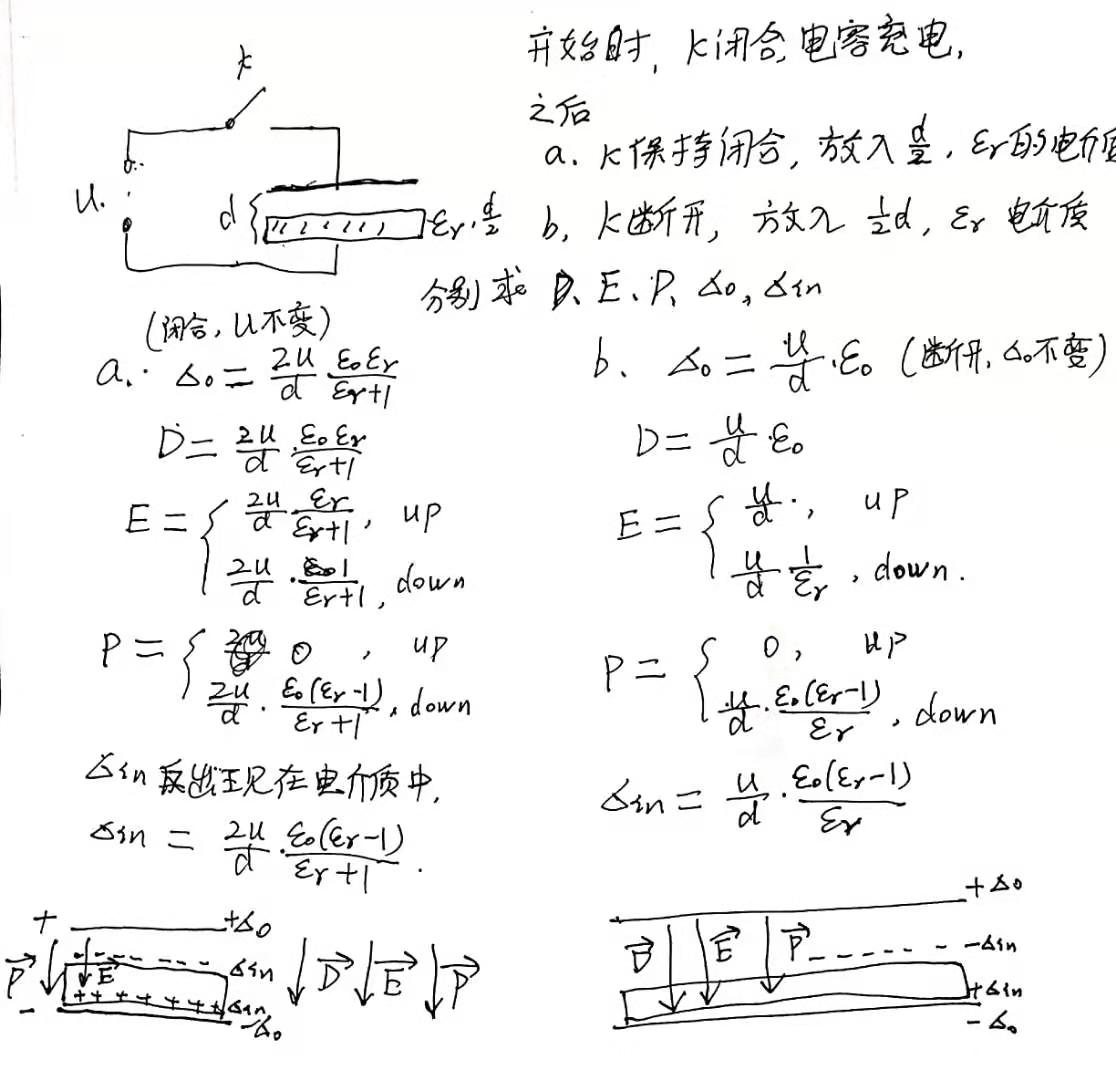 开始时, K闭合, 电容充电,
之后
a. K保持闭合, 放入 d/2, εr的电介质
b, K断开, 放入 1/2d, εr 电介质
分别求 D、E、P、σ0, σin
K
U.
d
εr, d/2
(闭合, U不变)
a. σ0 = 2U/d ε0εr/εr+1
D = 2U/d · ε0εr/εr+1
E = { 2U/d · εr/εr+1, up
2U/d · 1/εr+1, down
P = { 0, up
2U/d · ε0(εr-1)/εr+1, down
σin 只出现在电介质中,
σin = 2U/d · ε0(εr-1)/εr+1 .
+ +σ0
P E σin D E P
+ + + + + + + σin
- -σ0
b. σ0 = U/d · ε0 (断开, σ0不变)
D = U/d · ε0
E = { U/d ·, up
U/d 1/εr, down.
P = { 0, up
U/d · ε0(εr-1)/εr, down
σin = U/d · ε0(εr-1)/εr
+σ0
D E P -σin
+σin
-σ0